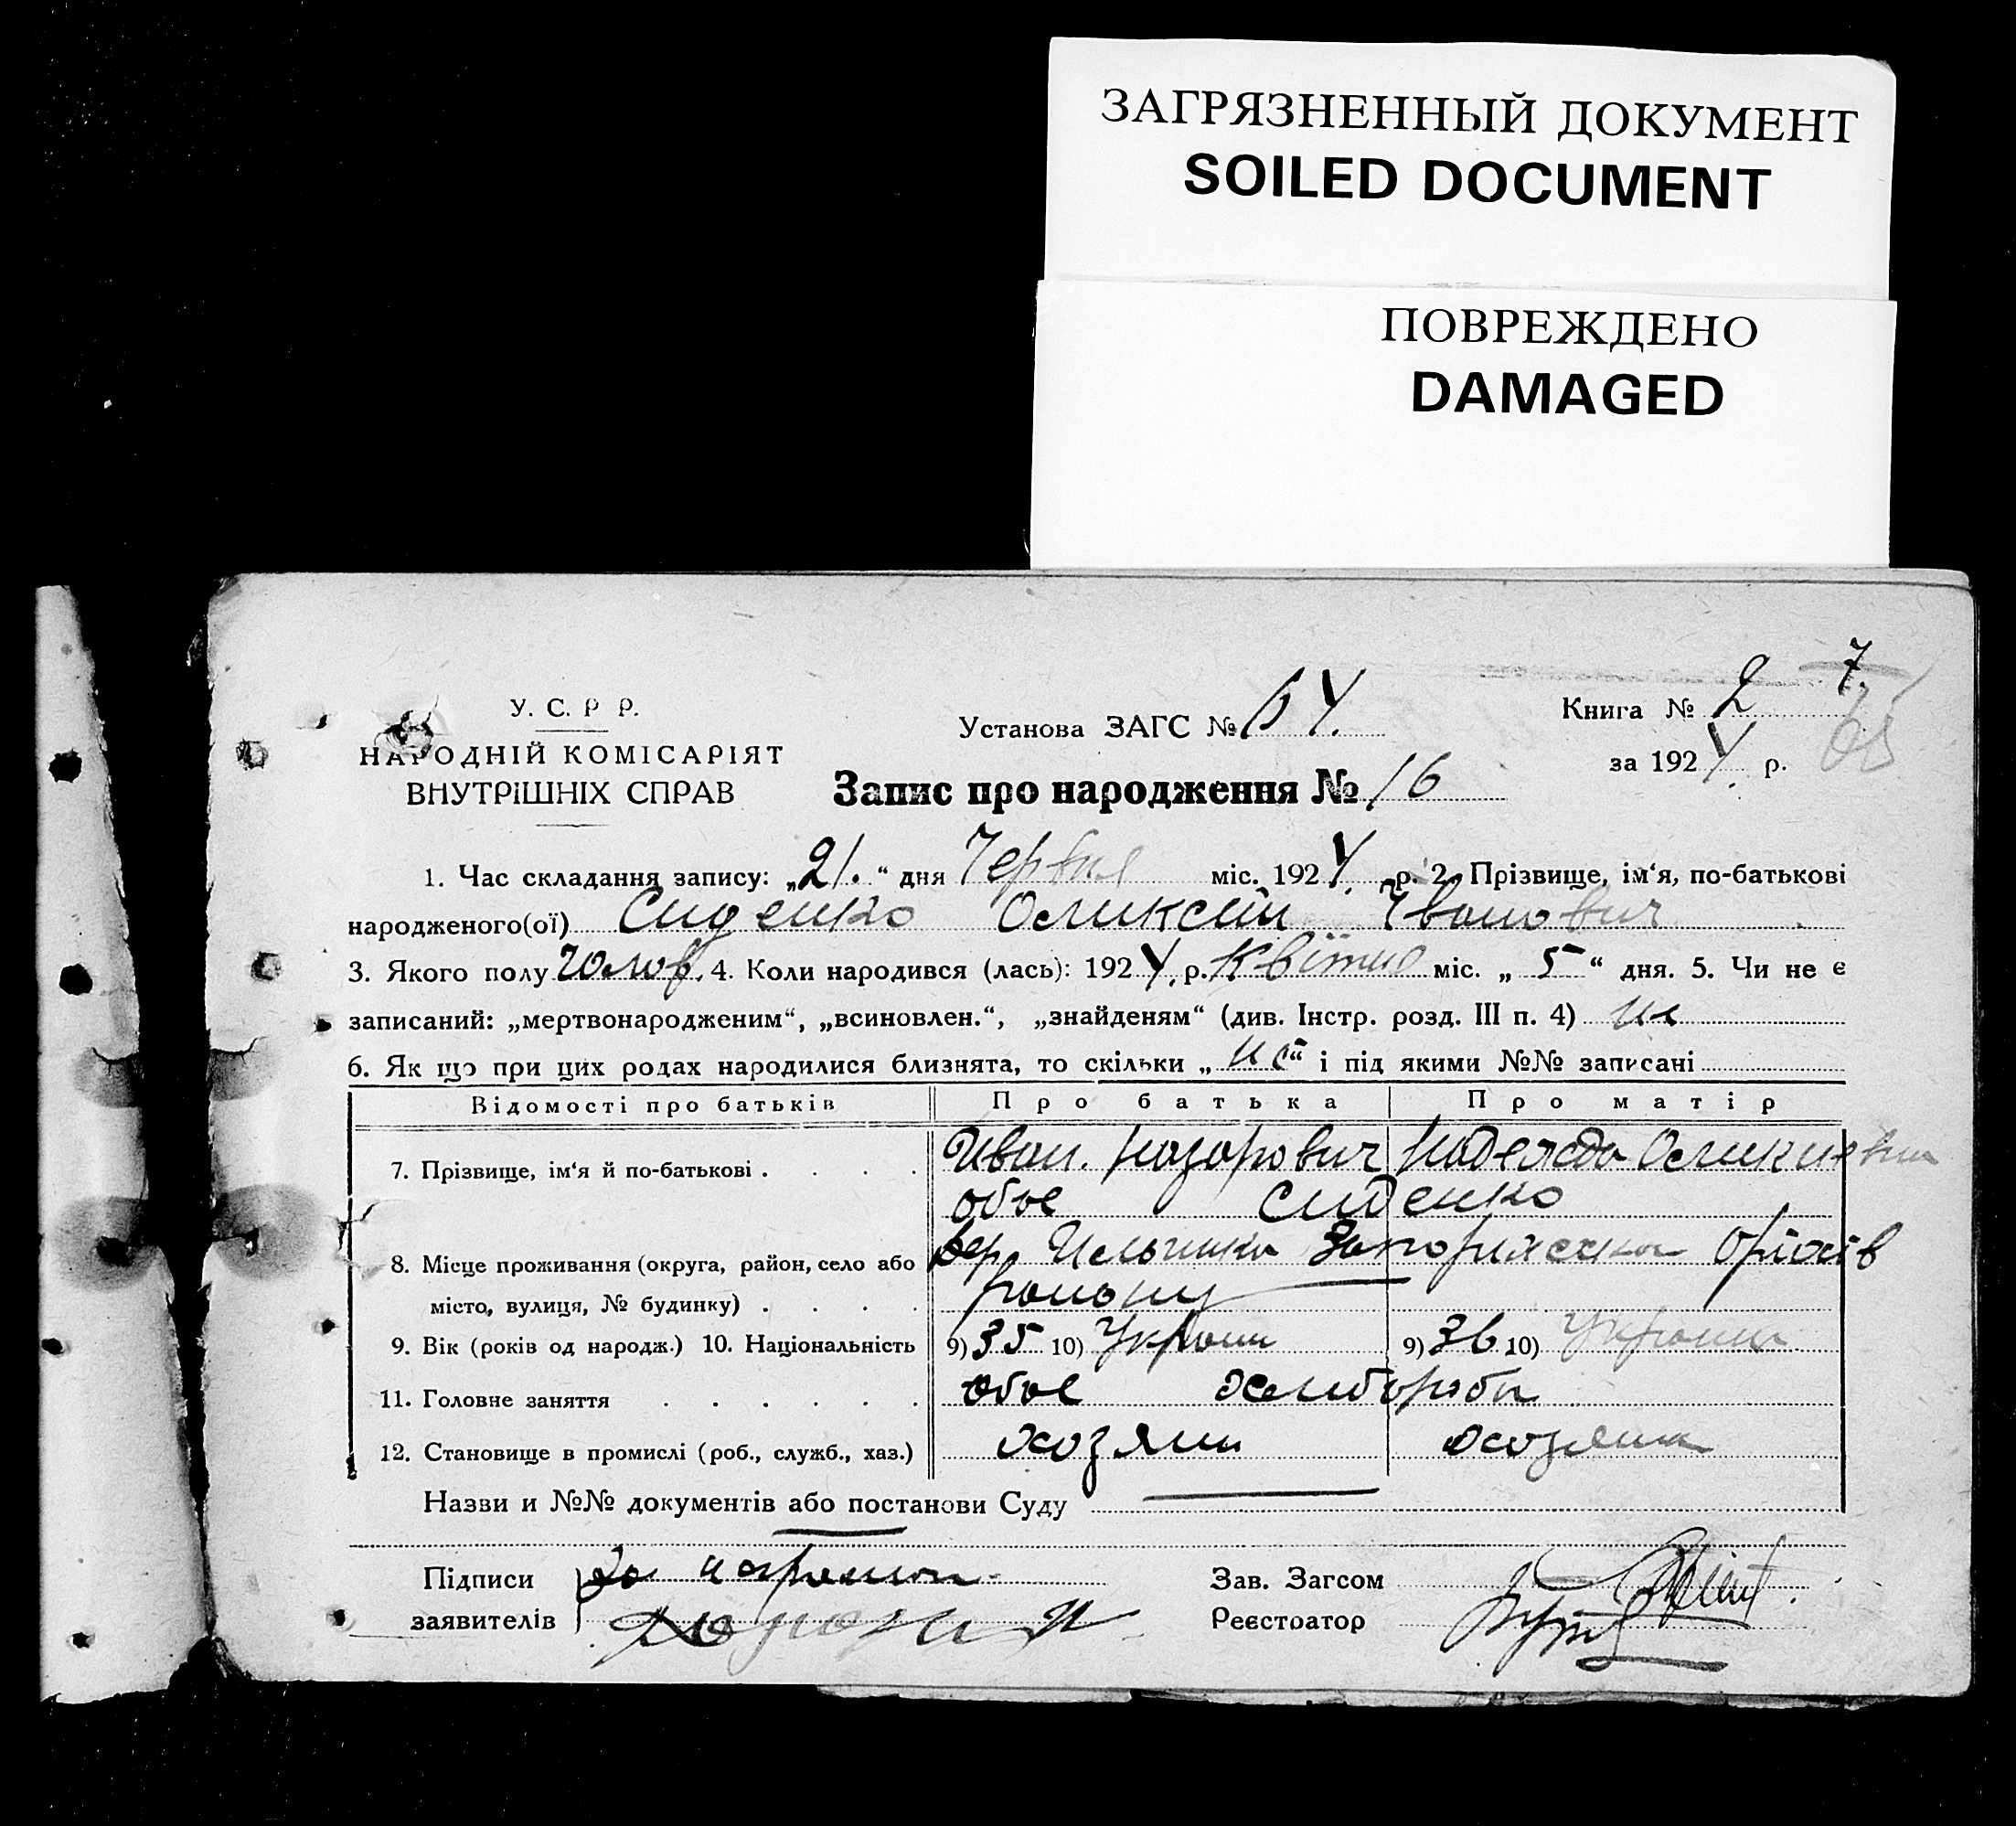 ЗАГРЯЗНЕННЫЙ ДОКУМЕНТ
SOILED DOCUMENT
ПОВРЕЖДЕНО
DAMAGED
7.
У. С. Р Р.
НАРОДНІЙ КОМІСАРІЯТ
ВНУТРІШНІХ СПРАВ
Установа ЗАГС №
Книга № 2
за 1924 р.
Запис про народження № 16
1. Час складання запису: „21.“ дня Червня міс. 1924 р. 2. Прізвище, ім‘я, по-батькові
народженого(ої) Сиденко Оликсій Іванович
3. Якого полу Чолов. 4. Коли народився (лась): 1924 р. Квітня міс. „5“ дня. 5. Чи не є
записаний: „мертвонародженим“, „всиновлен.“, „знайденям“ (див. Інстр. розд. III п. 4) не
6. Як що при цих родах народилися близнята, то скільки „не“ і під якими №№ записані
Відомості про батьків Про батька Про матір
7. Прізвище, ім‘я й по-батькові . . . . Иван. Назарович Надежда
обое Сиденко
8. Місце проживання (округа, район, село або
місто, вулиця, № будинку) . . . . району
9. Вік (років од народж.) 10. Національність 9) 35 10) Украин 9) 36 10) Украин
11. Головне заняття . . . . . . обое хлибороби
12. Становище в промислі (роб., служб., хаз.) хозяин хозяика
Назви и №№ документів або постанови Суду
Підписи
заявителів
Зав. Загсом
Реєстратор